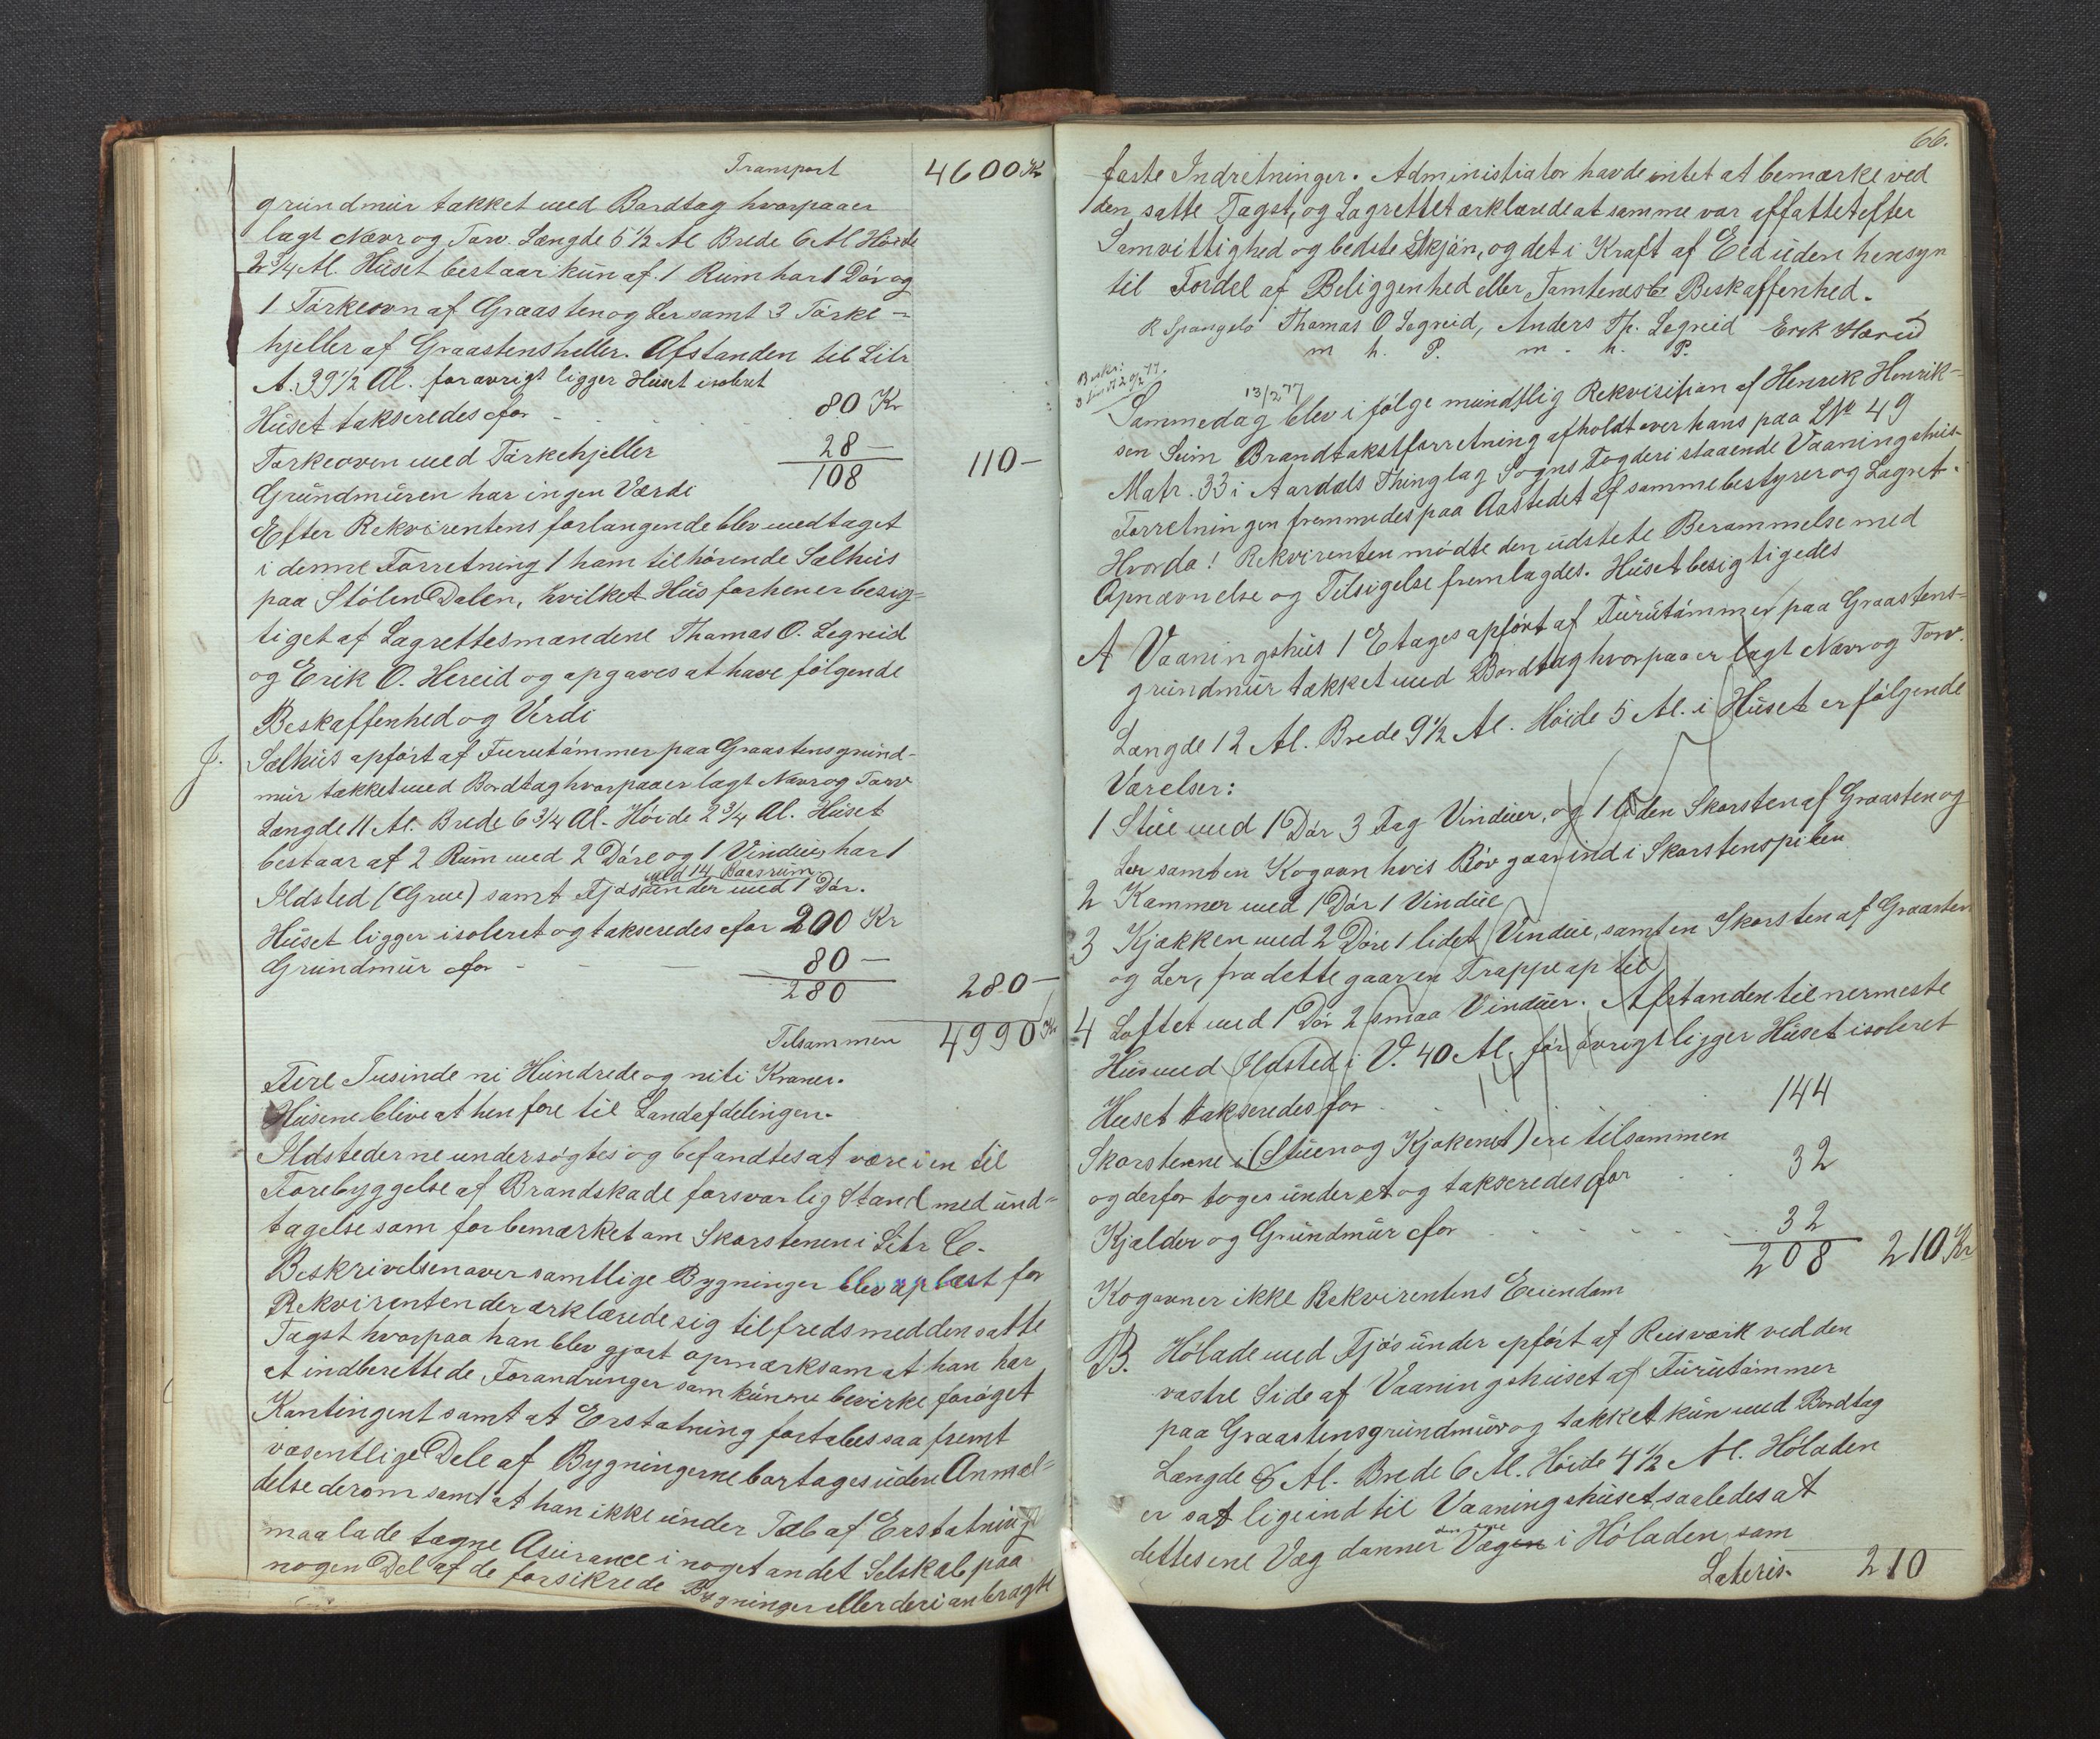 Transport 4600 Kr
grundmur tækket med Bordtag hvorpaa er
lagt Næver og Torv. Længde 5 1/2 Al Brede 6 Al Höide
2 3/4 Al. Huset bestaar kun af 1 Rum har 1 Dör og
1 Törkeovn af Graasten og Ler samt 3 Törke-
hjeller af Graastensheller. Afstanden til Litr
A. 39 1/2 Al. forövrigt ligger Huset isoleret
Huset takseredes for 80 Kr
Törkeoven med Törkehjeller 28 — 110 —
Grundmuren har ingen Værdi 108
Efter Rekvirentens forlangende blev medtaget
i denne Forretning 1 ham tilhörende Sælhus
paa Stölen Dalen, hvilket Hus forhen er besig=
tiget af Lagrettesmændene Thomas O. Legreid
og Erik O. Hereid og opgaves at have fölgende
Beskaffenhed og Verdi
J. Sælhus opfört af Furutömmer paa Graastensgrund-
mur tækket med Bordtag hvorpaa er lagt Næver og Torv
Længde 11 Al. Brede 6 3/4 Al. Höide 2 3/4 Al. Huset
bestaar af 2 Rum med 2 Döre og 1 Vindue, har 1
med 14 Baasrum
Ildsted (Grue) samt Fjös under med 1 Dör.
Huset ligger isoleret og takseredes for 200 Kr
Grundmur for 80 —
280 280 —
Tilsammen 4990 Kr
Fire Tusinde ni Hundrede og niti Kroner.
Husene blive at henföre til Landafdelingen.
Ildstederne undersögtes og befandtes at være i en til
Forebyggelse af Brandskade forsvarlig Stand med und=
tagelse som for bemærket om Skorstenen i Litr C.
Beskrivelsen over samtlige Bygninger blev oplæst for
Rekvirenten der erklærede sig tilfreds med den satte
Tagst hvorpaa han blev gjort opmærksom at han har
at indberette de Forandringer som kunne bevirke foröget
Kontingent samt at Erstatning fortabes saafremt
væsentlige Dele af Bygningerne borttages uden Anmel=
delse derom samt at han ikke under Tab af Erstatning
maa lade tegne Assurance i noget andet Selskab paa
nogen Del af de forsikrede Bygninger eller deri anbragte
66.
faste Indretninger. Administrator havde intet at bemærke ved
den satte Tagst, og Lagrettet erklærede at samme var affattet efter
Samvittighed og bedste Skjön, og det i Kraft af Eed uden hensyn
til Fordel af Beliggenhed eller Tomtens Beskaffenhed.
R Spangelo Thomas O Legreid, Anders Th. Legreid Erik Hæreid
m h. P. m. h. P.
13/2 77
Sammedag blev i fölge mundtlig Rekvisition af Henrik Henrik=
sen Seim Brandtakstforretning afholdt over hans paa LNo 49
Matr. 33 i Aardals Thinglag Sogns Fogderi staaende Vaaningshus
Forretningen fremmedes paa Aastedet af samme bestyrer og Lagret.
Hvorda! Rekvirenten mödte den udstete Berammelse med
Opnævnelse og Tilsigelse fremlagdes. Huset besigtigedes
A Vaaningshus 1 Etages opfört af Furutömmer paa Graastens=
grundmur tækket med Bordtag hvorpaa er lagt Næver og Torv.
Længde 12 Al. Brede 9 1/2 Al. Höide 5 Al. i Huset er fölgende
Værelser:
1 Stue med 1 Dör 3 Fag Vinduer, og 1 liden Skorsten af Graasten og
Ler samt en Kogovn hvis Rör gaar ind i Skorstenspiben
2 Kammer med 1 Dör 1 Vindue
3 Kjökken med 2 Döre 1 lidet Vindue, samt en Skorsten af Graasten
og Ler, fra dette gaar en Trappe op til
4 Loftet med 1 Dör 2 smaa Vinduer. Afstanden til nermeste
Hus med Ildsted i V. 40 Al. for övrigt ligger Huset isoleret
Huset takseredes for 144
Skorstene i (Stuen og Kjökenet) ere tilsammen
og derfor toges under et og takseredes for 32
Kjælder og Grundmur for 32
208 210 Kr
Kogovn er ikke Rekvirentens Eiendom
B. Hölade med Fjös under opfört af Reisværk ved den
vestre Side af Vaaningshuset af Furutömmer
paa Graastensgrundmur og tækket kun med Bordtag
Længde 8 Al. Brede 6 Al. Höide 4 1/2 Al. Höladen
er sat lige ind til Vaaningshuset, saaledes at
den ene
dettes ene Væg danner Vægen i Höladen, som
Lateris. 210